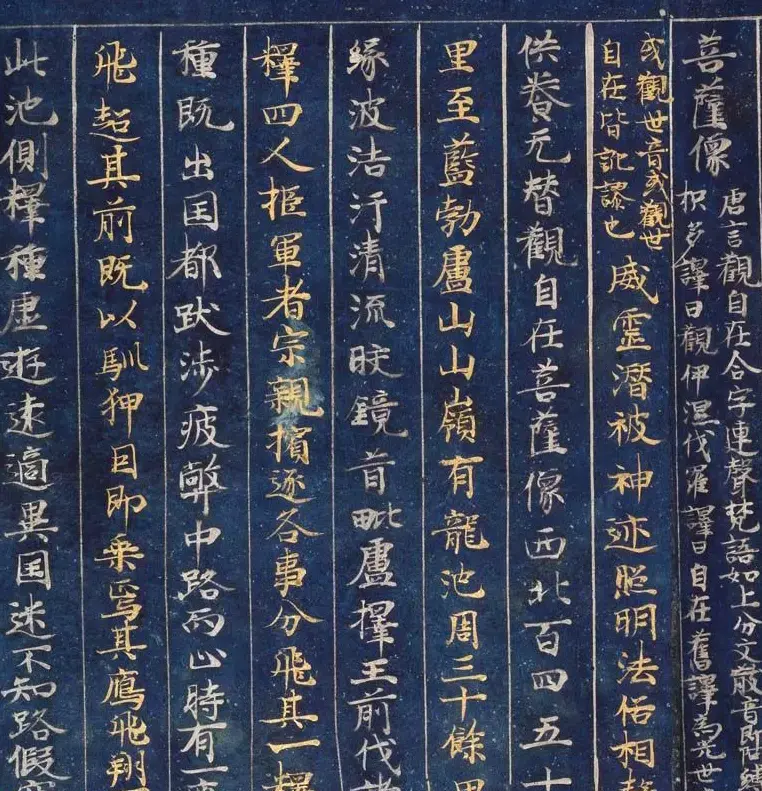 菩薩像
唐言觀自在合字連聲梵語如上分文散音即阿縛
枳多譯曰觀伊濕伐羅譯曰自在舊譯為光世
或觀世音或觀世
自在皆訛謬也
威靈潛被神迹照明法俗相
供養无替觀自在菩薩像西北百四五十
里至藍勃盧山山嶺有龍池周三十餘里
緣波浩汗清流皎鏡昔毗盧擇王前伐諸
釋四人拒軍者宗親擯逐各事分飛其一釋
種既出国都跋涉疲弊中路而止時有一
飛超其前既以馴狎因即乗焉其鷹飛翔
此池側釋種虛遊遠適異国迷不知路假